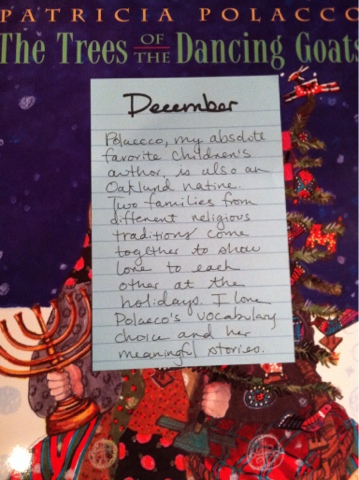 PATRICIA POLACCO
The Trees OF THE Dancing Goats
December
Polacco, my absolute
favorite children's
author, is also an
Oakland native.
Two families from
different religious
traditions come
together to show
love to each
other at the
holidays. I love
Polacco's vocabulary
choice and her
meaningful stories.